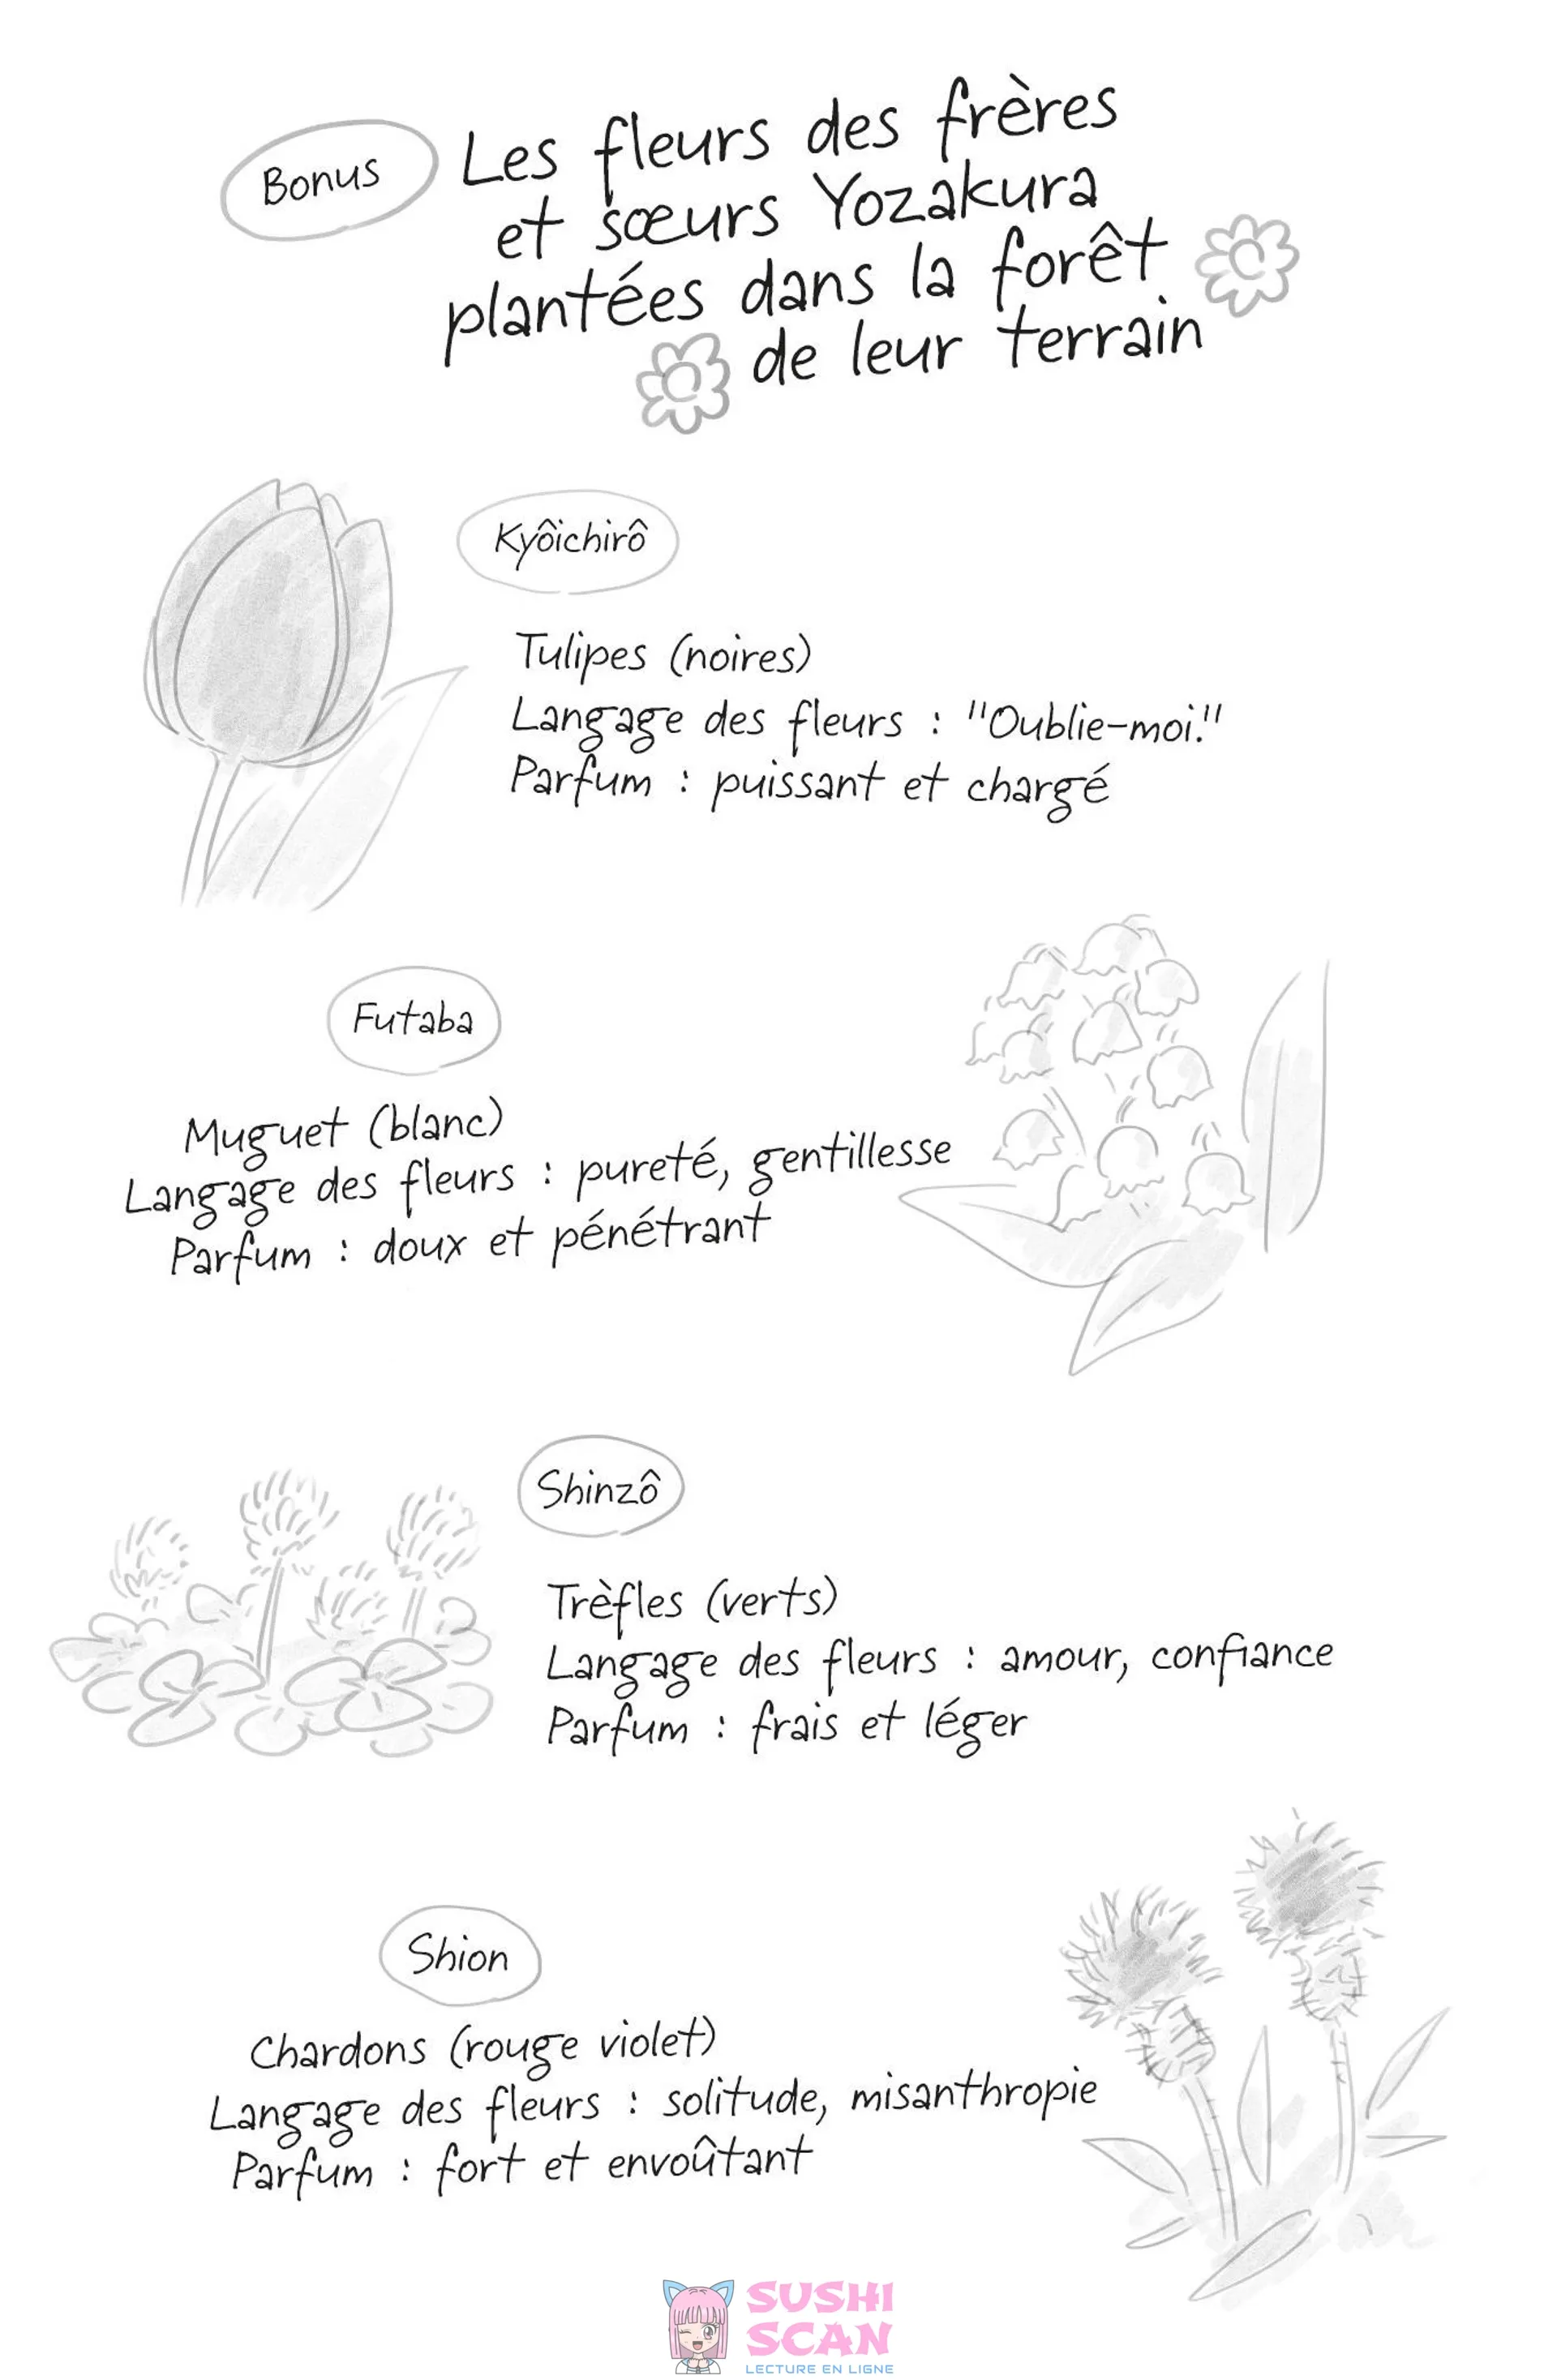 Bonus
Les fleurs des frères
et sœurs Yozakura
plantées dans la forêt
de leur terrain
Kyôichirô
Tulipes (noires)
Langage des fleurs : "Oublie-moi."
Parfum : puissant et chargé
Futaba
Muguet (blanc)
Langage des fleurs : pureté, gentillesse
Parfum : doux et pénétrant
Shinzô
Trèfles (verts)
Langage des fleurs : amour, confiance
Parfum : frais et léger
Shion
Chardons (rouge violet)
Langage des fleurs : solitude, misanthropie
Parfum : fort et envoûtant
SUSHI
SCAN
LECTURE EN LIGNE